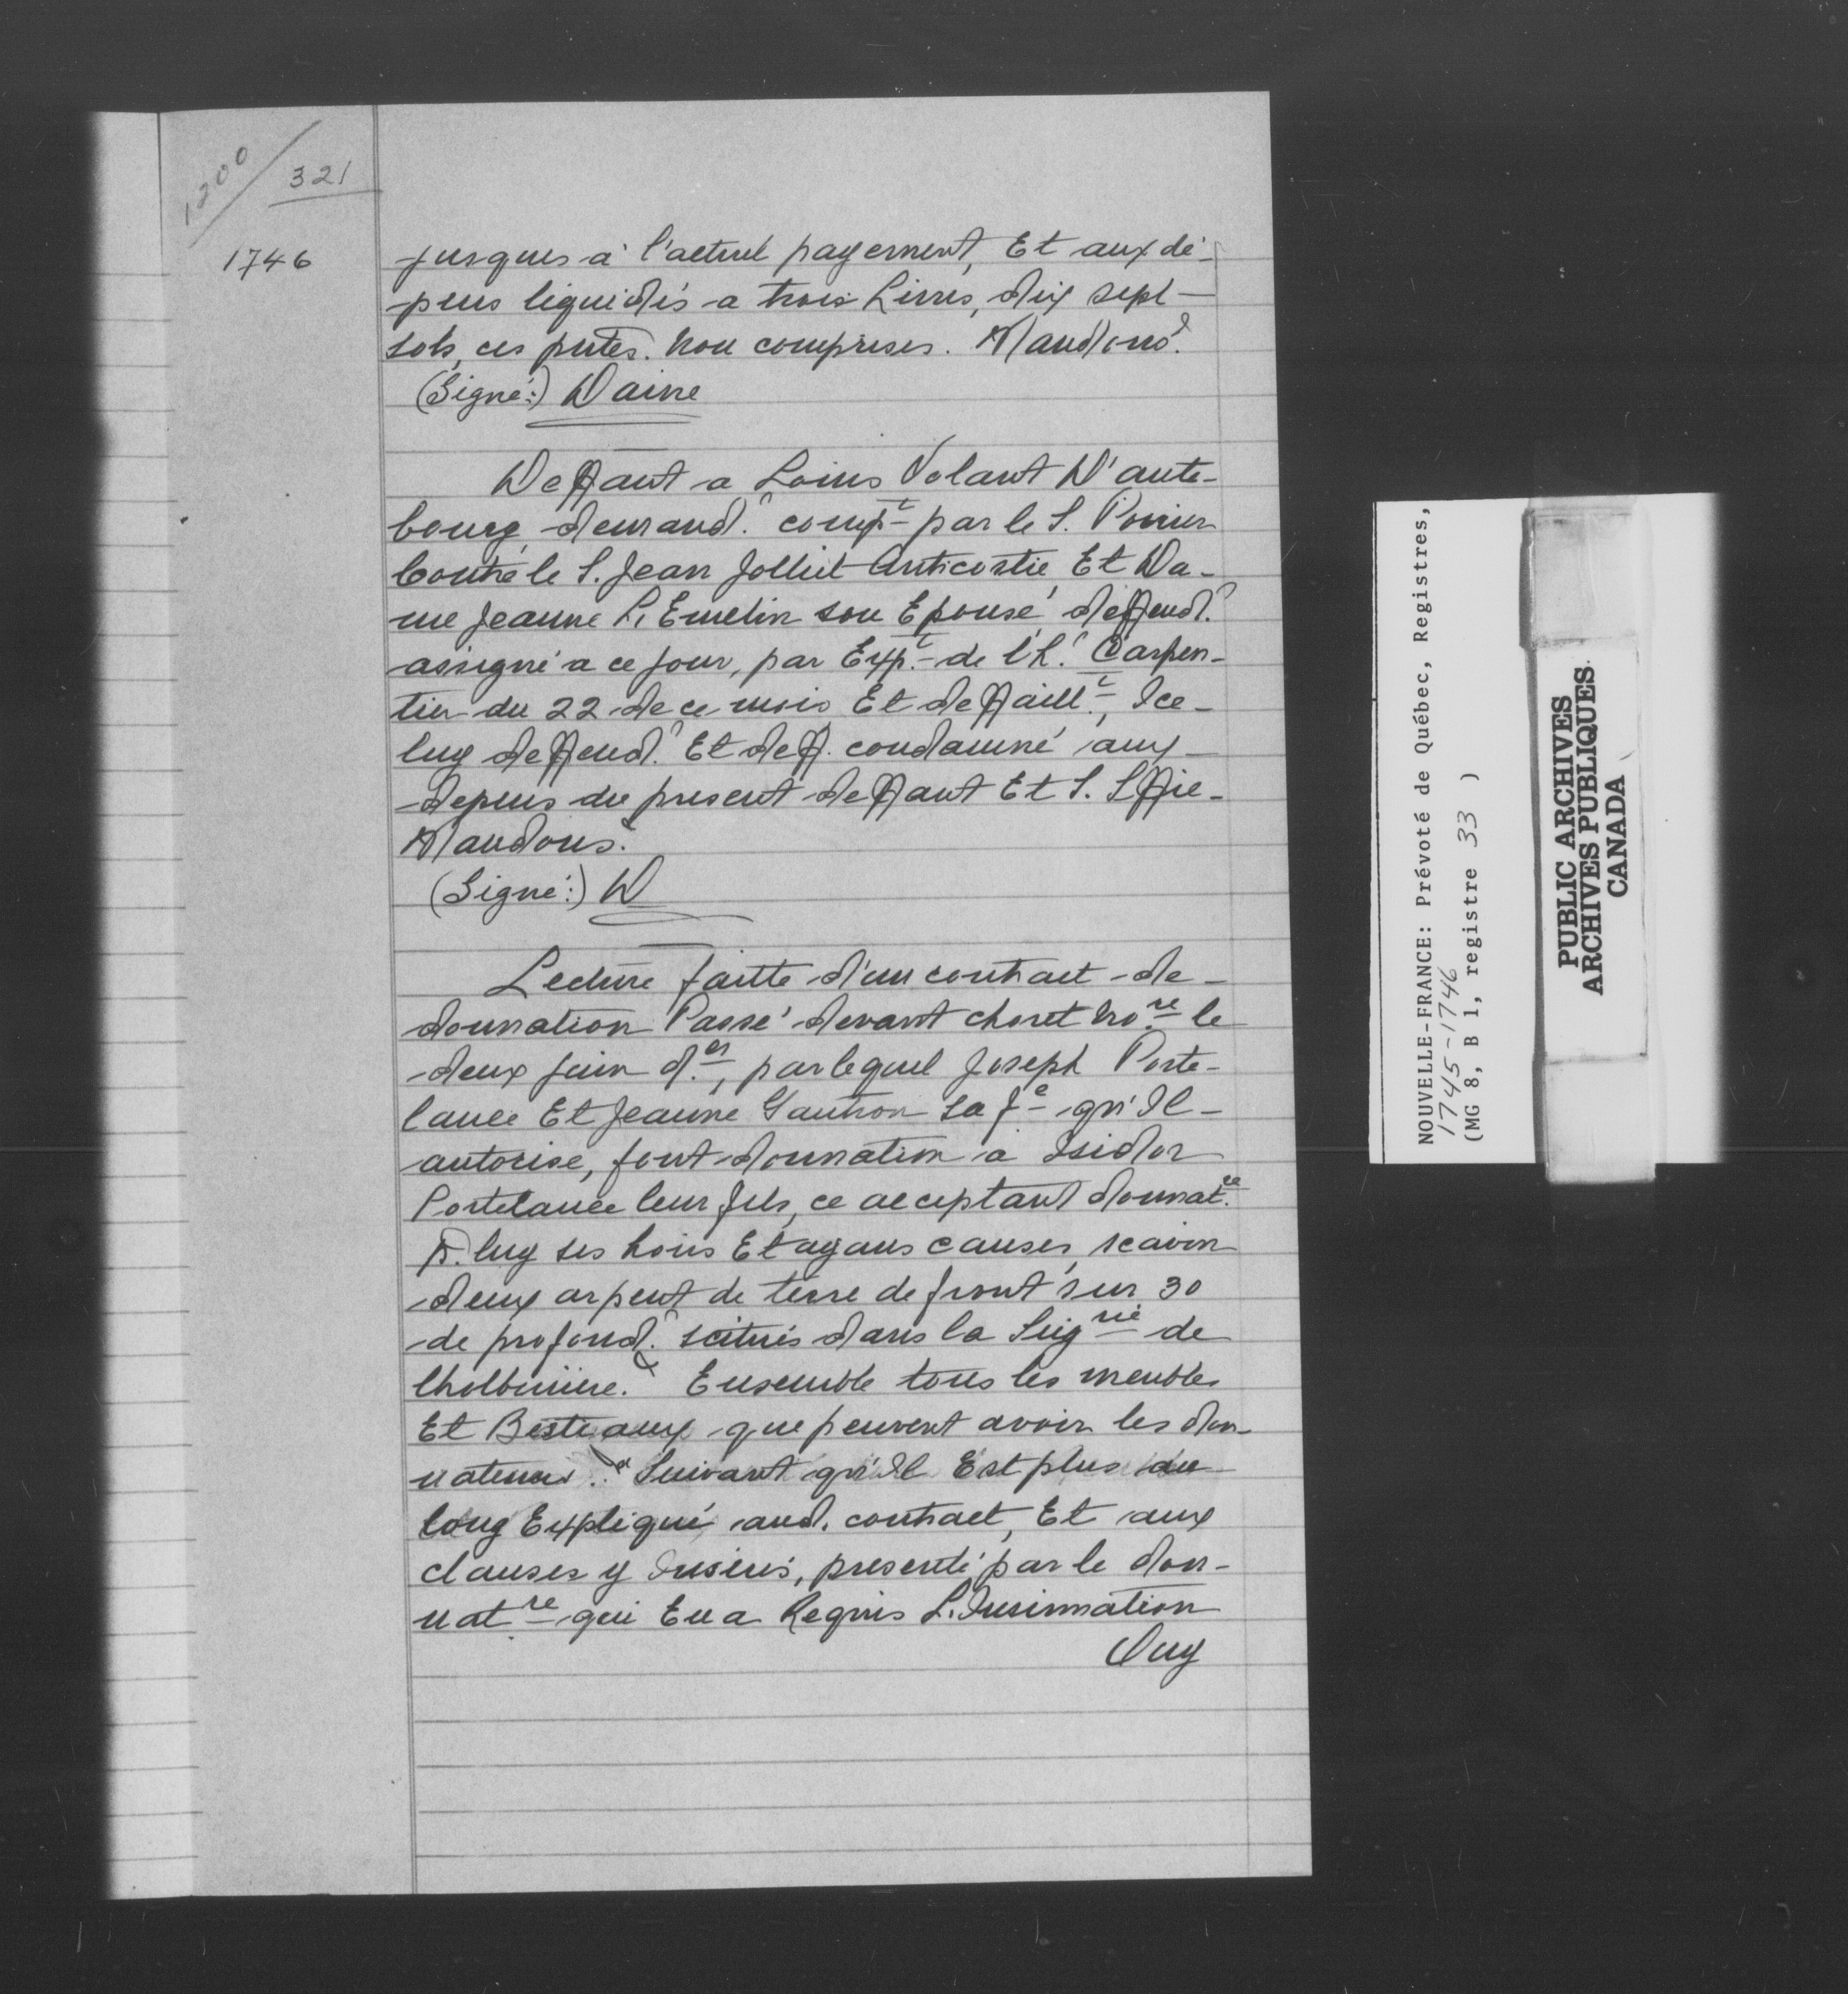 1200 / 321
1746
jusques à l'actuel payement, Et aux dé-
pens liquidés a trois Livres, dix sept
sols, ces pntes. non comprises. Mandons.
(Signé:) Daine
Deffaut a Louis Volant D'aute-
bourg demand.r compt par le S. Poirier
Contre le S. Jean Jolliet Anticostie Et Da-
me Jeanne L. Emelin son Epouse, deffend.r
assigné a ce jour, par Expt de l'h.r Carpen-
tier du 22 de ce mois Et deffaill.t, Ice-
luy deffend.r Et deff. condamné aux
depens du present deffaut Et S. Sffie.
Mandons.
(Signé:) D
Lecture faitte d'un contract de
donnation Passé devant choret No.re le
deux juin d.er, par lequel Joseph Porte-
lance Et Jeanne Gautron sa f.e qu'Il
autorise, font donnation a Isidor
Portelance leur fils, ce acceptant donnat.re
P. luy ses hoirs Et ayans causes, scavoir
deux arpent de terre de front sur 30
de profond.r scitués dans la Seig.rie de
lhotbiniere. Ensemble tous les meubles
Et Bestiaux que peuvent avoir les don-
nateurs. Suivant qu'Il Est plus au
long Expliqué aud. contract, Et aux
clauses y Inserés, presenté par le don-
nat.re qui En a Requis L. Insinuation
Ouy
NOUVELLE-FRANCE: Prévoté de Québec, Registres,
1745-1746
(MG 8, B 1, registre 33 )
PUBLIC ARCHIVES
ARCHIVES PUBLIQUES
CANADA